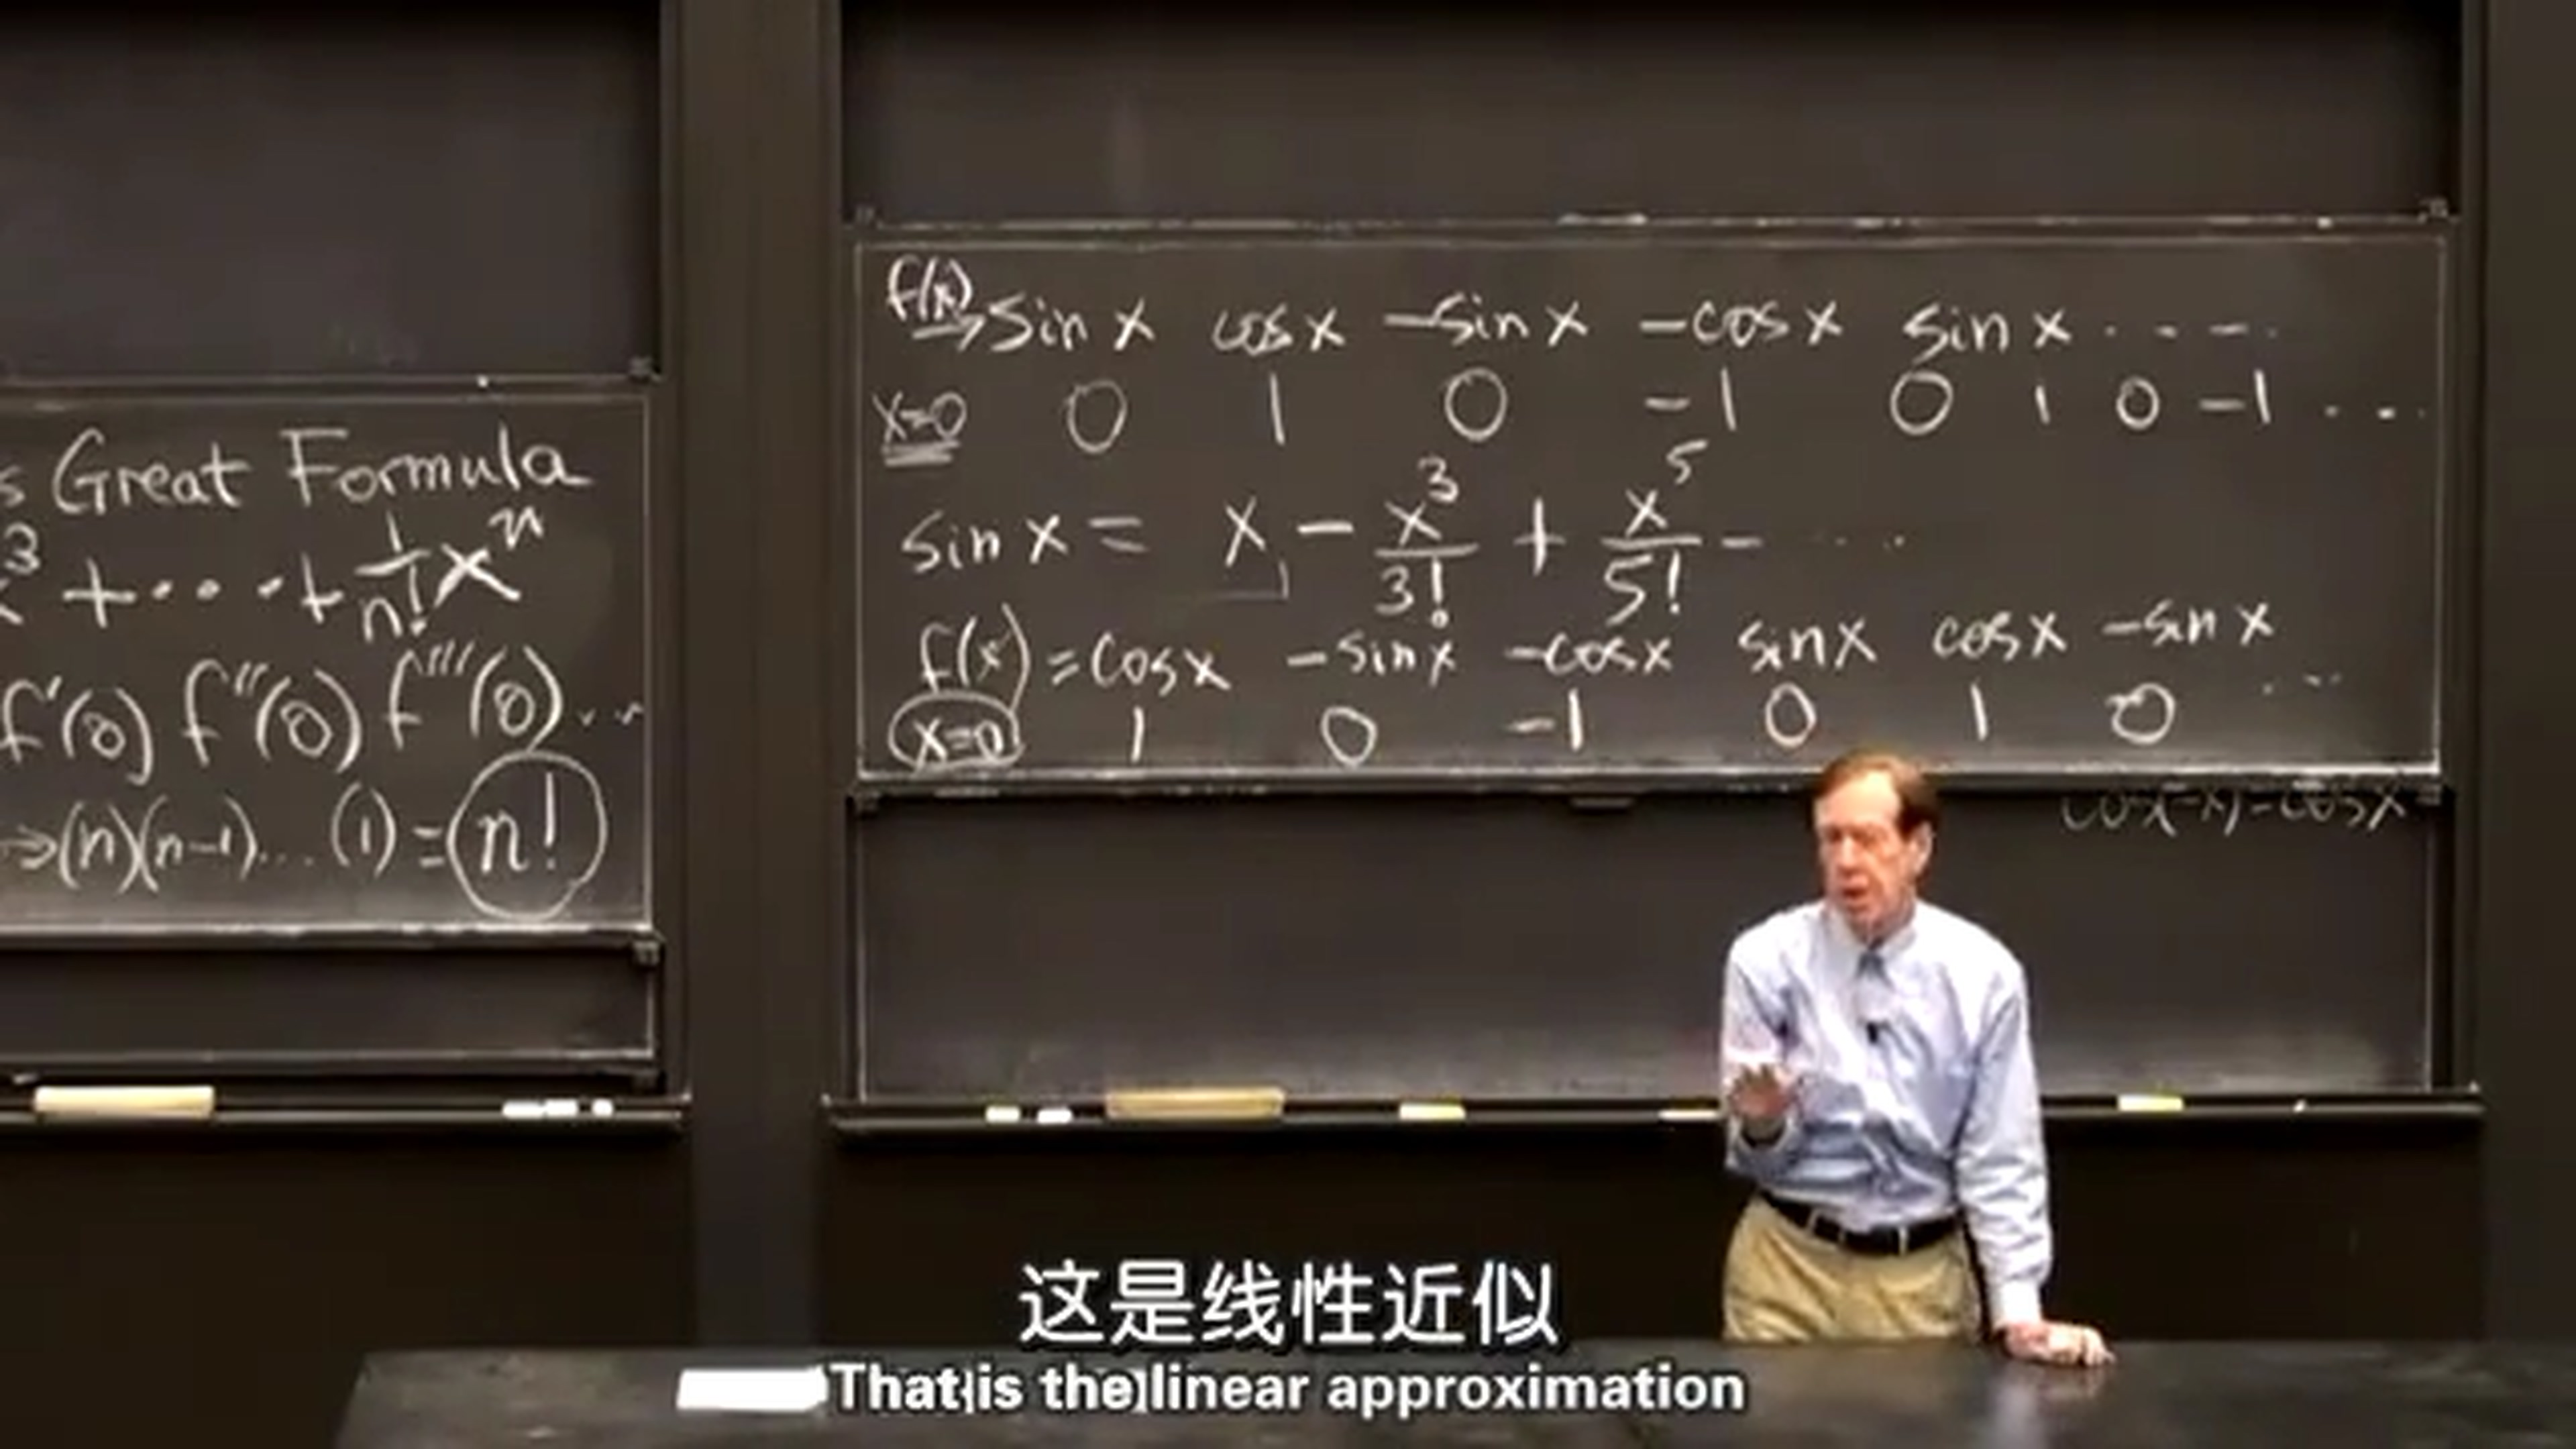 s Great Formula
x³ +···+ 1/n! xⁿ
f'(0) f''(0) f'''(0)...
→(n)(n-1)...(1)=n!
f(x)
→ sin x cos x -sin x -cos x sin x ....
x=0 0 1 0 -1 0 1 0 -1 ...
sin x = x - x³/3! + x⁵/5! - ....
f(x) = cos x -sin x -cos x sin x cos x -sin x
x=0 1 0 -1 0 1 0 ...
cos(-x)=cos x
这是线性近似
That is the linear approximation